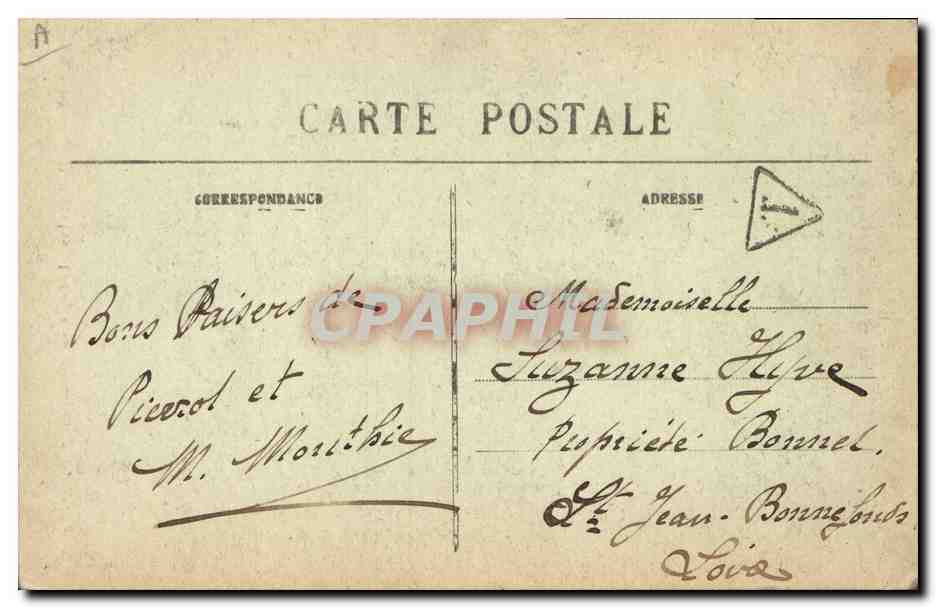 A
CARTE POSTALE
CORRESPONDANCE
ADRESSE
Bons Baisers de
Pierrot et
M. Mouthie
Mademoiselle
Suzanne Hyve
Propriété Bonnel.
St Jean-Bonnefonds
Loire
CPAPHIL